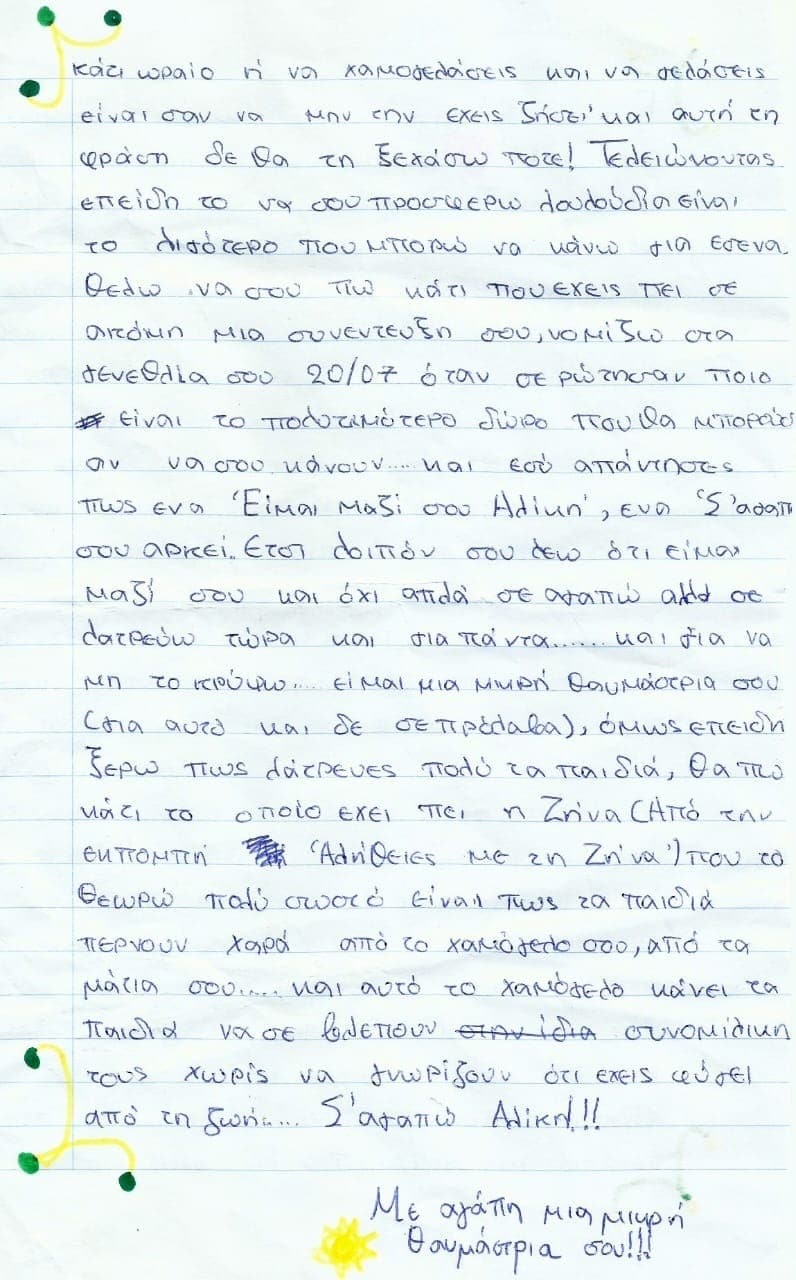 κάτι ωραίο ή να χαμογελάσεις και να γελάσεις
είναι σαν να μην την έχεις 'ζήσει' και αυτή τη
φράση δε θα τη ξεχάσω ποτέ! Τελειώνοντας
επειδή το να σου προσφέρω λουλούδια είναι
το λιγότερο που μπορώ να κάνω για εσένα
θέλω να σου πω κάτι που έχεις πει σε
ακόμη μια συνέντευξη σου, νομίζω στα
γενέθλια σου 20/07 όταν σε ρώτησαν ποιο
είναι το πολυτιμότερο δώρο που θα μπορούσ
αν να σου κάνουν.... και εσύ απάντησες
πως ενα 'Είμαι μαζί σου Αλίκη', ενα 'Σ'αγαπ
σου αρκεί. Ετσι λοιπόν σου λέω ότι είμαι
μαζί σου και όχι απλά σε αγαπώ αλλά σε
λατρεύω τώρα και για πάντα...... και για να
μη το κρύψω.... είμαι μια μικρή θαυμάστρια σου
(για αυτό και δε σε πρόλαβα), όμως επειδη
ξέρω πως λάτρευες πολύ τα παιδιά, θα πω
κάτι το οποίο έχει πει η Ζήνα (Από την
εκπομπή 'Αλήθειες με τη Ζήνα') που το
θεωρώ πολύ σωστό είναι πως τα παιδιά
πέρνουν χαρά από το χαμόγελο σου, από τα
μάτια σου..... και αυτό το χαμόγελο κάνει τα
παιδιά να σε βλέπουν στην ίδια συνομιλικη
τους χωρίς να γνωρίζουν ότι έχεις φύγει
από τη ζωή.... Σ'αγαπώ Αλίκη!!!
Με αγάπη μια μικρή
θαυμάστρια σου!!!